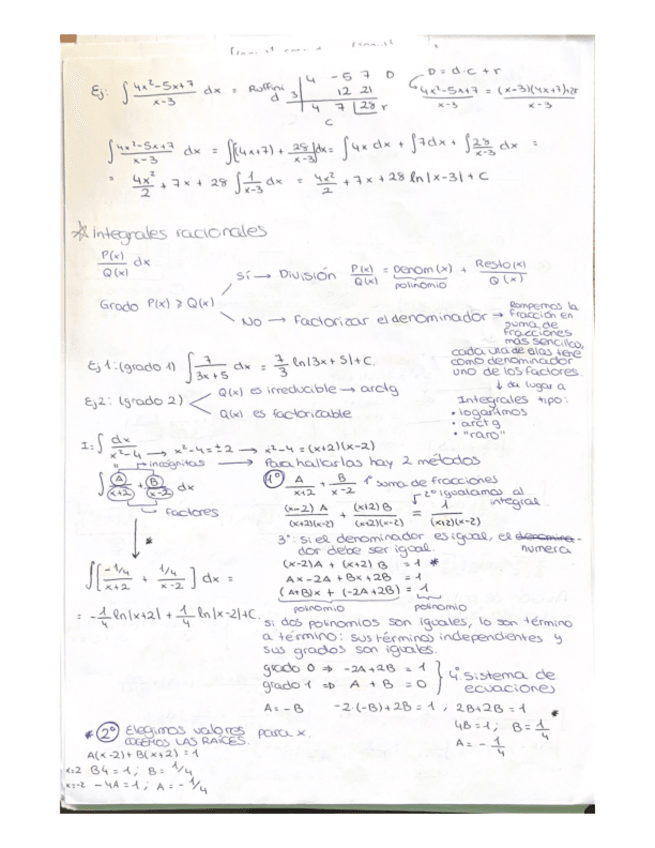 Ej: ∫ (4x²-5x+7)/(x-3) dx = Ruffini
4 -5 7 D
d 3 12 21
4 7 28 r
C
D = d·c + r
(4x²-5x+7)/(x-3) = ((x-3)(4x+7)+28)/(x-3)
∫ (4x²-5x+7)/(x-3) dx = ∫[(4x+7) + 28/(x-3)]dx = ∫4x dx + ∫7dx + ∫ 28/(x-3) dx =
= 4x²/2 + 7x + 28 ∫ 1/(x-3) dx = 4x²/2 + 7x + 28 ln|x-3| + C
☆ Integrales racionales
P(x)/Q(x) dx
Grado P(x) ≥ Q(x)
sí → División P(x)/Q(x) = Denom(x) + Resto(x)/Q(x)
polinomio
No → Factorizar el denominador → Rompemos la
fracción en
suma de
fracciones
más sencillas,
cada una de ellas tiene
como denominador
uno de los factores.
↓ da lugar a
Integrales tipo:
• logaritmos
• arctg
• "raro"
Ej1: (grado 1) ∫ 7/(3x+5) dx = 7/3 ln|3x+5|+C.
Ej2: (grado 2)
Q(x) es irreducible → arctg
Q(x) es factorizable
I = ∫ dx/(x²-4) → x²-4=±2 → x²-4 = (x+2)(x-2)
incógnitas → Para hallarlas hay 2 métodos
∫ A/(x+2) + B/(x-2) dx
factores
*
∫[(-1/4)/(x+2) + (1/4)/(x-2)] dx =
= -1/4 ln|x+2| + 1/4 ln|x-2|+C.
1º A/(x+2) + B/(x-2) 1º suma de fracciones
2º igualamos al
integral.
(x-2)A/((x+2)(x-2)) + (x+2)B/((x+2)(x-2)) = 1/((x+2)(x-2))
3º: si el denominador es igual, el denomina-
dor debe ser igual. numera
(x-2)A + (x+2)B = 1 *
Ax-2A + Bx+2B = 1
(A+B)x + (-2A+2B) = 1
polinomio polinomio
si dos polinomios son iguales, lo son término
a término: sus términos independientes y
sus grados son iguales.
grado 0 ⇒ -2A+2B = 1
grado 1 ⇒ A + B = 0
4º sistema de
ecuaciones
A = -B -2·(-B)+2B = 1 ; 2B+2B = 1 *
4B = 1 ; B = 1/4
A = -1/4
* 2º Elegimos valores para x.
COGEMOS LAS RAÍCES.
A(x-2)+B(x+2) = 1
x=2 B4 = 1 ; B = 1/4
x=-2 -4A = 1 ; A = -1/4